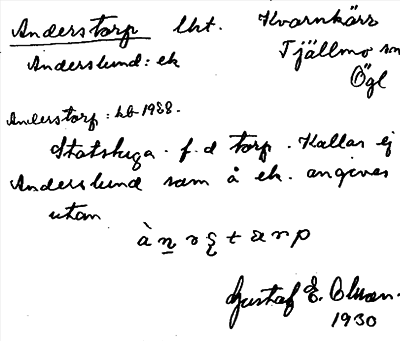 Anderstorp lht. Kvarnkärr
Anderslund: ek Tjällmo sn
Ögl
Anderstorp: hb 1988.
Statstuga. f.d torp. Kallas ej
Anderslund som å ek. angives
utan
à n r ş t a r p
Gustaf E. Olsson.
1930